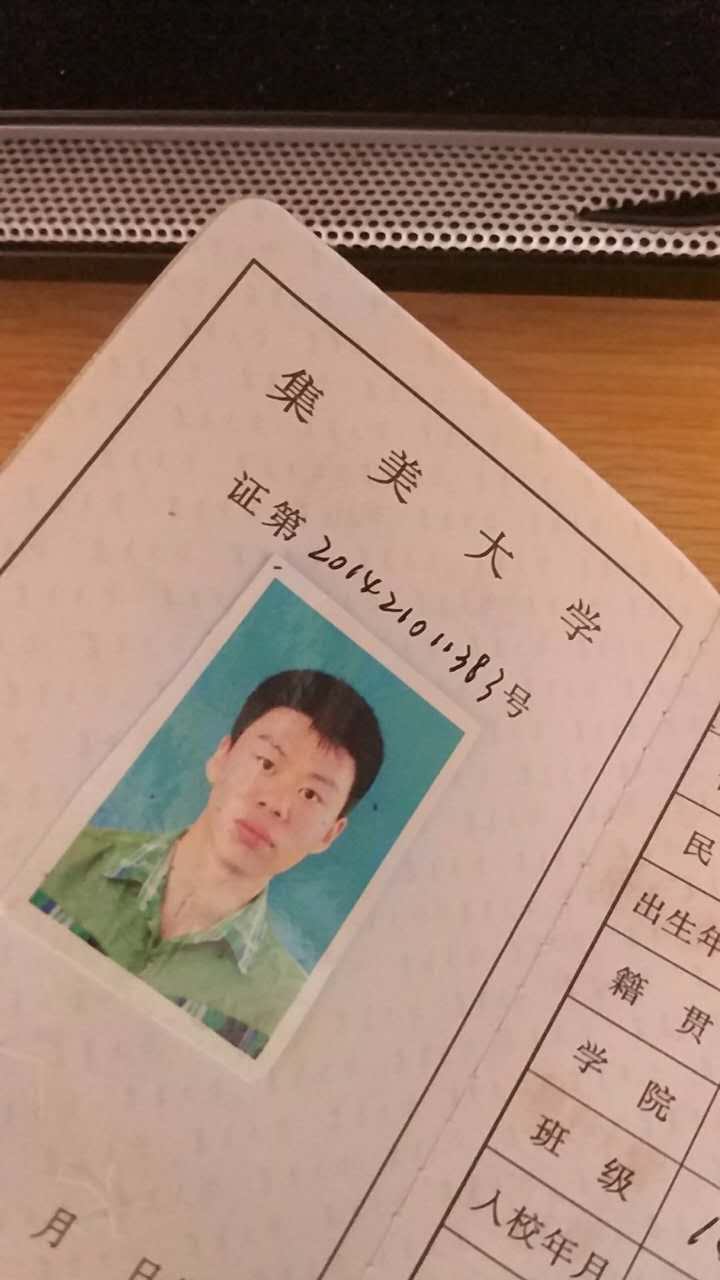 集美大学
证第201421011383号
月 日
民
出生年
籍贯
学院
班级
入校年月